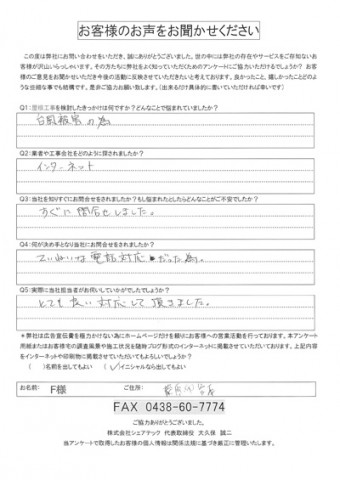 お客様のお声をお聞かせください
この度は弊社にお問い合わせをいただき、誠にありがとうございました。世の中には弊社の存在やサービスをご存知ないお
客様が沢山いらっしゃいます。その方たちに弊社をよく知っていただくためのアンケートにご協力いただけるでしょうか？ お客
様のご意見をお聞かせいただき今後の活動に反映させていただきたいと考えております。良かったこと、嬉しかったことどのよ
うな些細な事でも結構です。是非ご協力お願い致します。（出来るだけ具体的に書いていただければ幸いです）
Q1：屋根工事を検討したきっかけは何ですか？どんなことで悩まれていましたか？
台風被害の為
Q2：業者や工事会社をどのように探されましたか？
インターネット
Q3：当社を知りすぐにお問合せをされましたか？もし悩まれたとしたらどんなことがご不安でしたか？
すぐに問合せしました。
Q4：何が決め手となり当社にお問合せをされましたか？
ていねいな電話対応だった為。
Q5：実際に当社担当者がお伺いしていかがでしたでしょうか？
とても良い対応して頂きました。
＊弊社は広告宣伝費を極力かけない為にホームページだけを頼りにお客様への営業活動を行っております。本アンケート
用紙またはお客様宅の調査風景や施工状況を随時ブログ形式のインターネットに掲載させていただいております。上記内容
をインターネットや印刷物に掲載させていただいてもよろしいでしょうか？
（　）名前を出してもよい　（✓）イニシャルなら出してもよい
お名前： F様　ご住所：
FAX 0438-60-7774
ご協力ありがとうございました。
株式会社シェアテック 代表取締役 大久保 誠二
当アンケートで取得したお客様の個人情報は関係法規に基づき厳正に管理いたします。